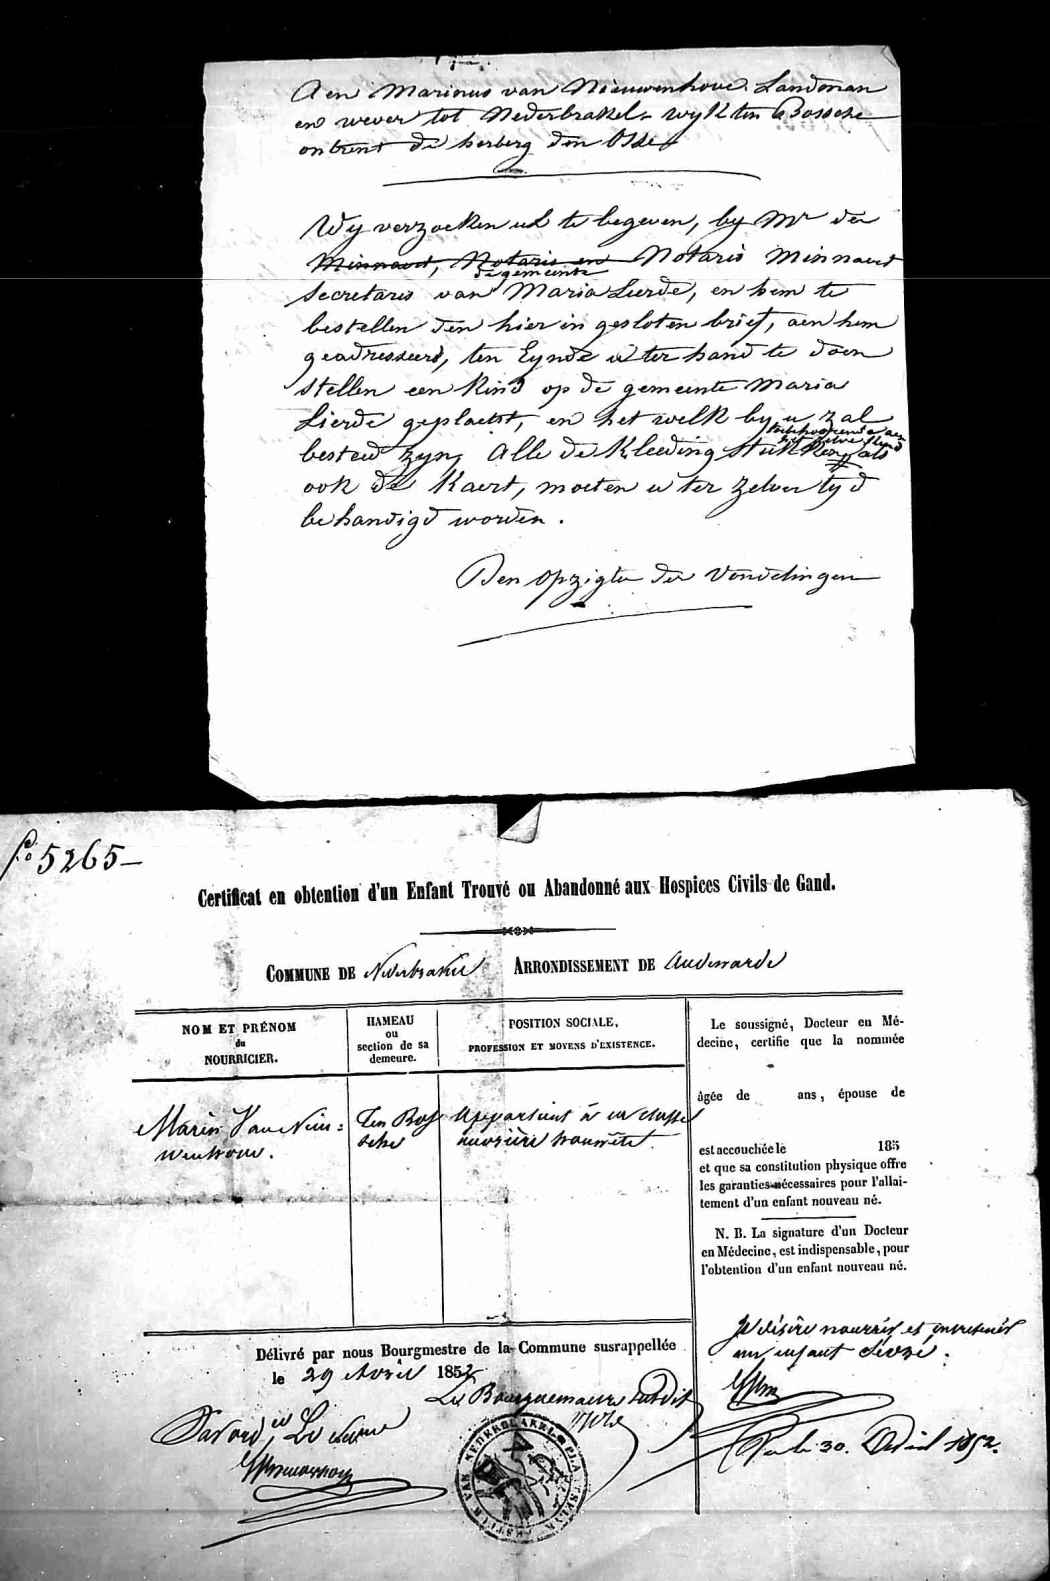 Aen Marinus van Nieuwenhove. Landman
en wever tot Nederbrakel- wyk ten Bossche
ontrent de herberg den Osse
Wy verzoeken ul te begeven, by Mr den
Minnaert, Notaris en Notaris Minnaert
de gemeente
secretaris van Maria Lierde, en hem te
bestellen den hier in gesloten brief, aen hem
geadresseerd, ten Eynde u ter hand te doen
stellen een Kind op de gemeente Maria
Lierde geplaetst, en het welk by u zal
toebehoorende aen
het zelve Kind
besteed zyn, Alle de Kleeding stukken, als
ook de Kaert, moeten u ter zelver tyd
behandigd worden.
Den Opzigter der Vondelingen
fo. 5265-
Certificat en obtention d'un Enfant Trouvé ou Abandonné aux Hospices Civils de Gand.
COMMUNE DE Nederbrakel ARRONDISSEMENT DE Audenarde
NOM ET PRÉNOM
du
NOURRICIER.
HAMEAU
ou
section de sa
demeure.
POSITION SOCIALE,
PROFESSION ET MOYENS D'EXISTENCE.
Marin Van Nieu=
wenhove.
Ten Bos
sche
Appartient à la classe
ouvrière honnête
Le soussigné, Docteur en Mé-
decine, certifie que la nommée
âgée de ans, épouse de
est accouchée le 185
et que sa constitution physique offre
les garanties nécessaires pour l'allai-
tement d'un enfant nouveau né.
N. B. La signature d'un Docteur
en Médecine, est indispensable, pour
l'obtention d'un enfant nouveau né.
Je désire nourrir et entretenir
un enfant sévré.
Délivré par nous Bourgmestre de la Commune susrappellée
le 29 Avril 1852
Le Bourguemaitre susdit
Par ord.ce Le Secre
Gand 30. Avril 1852.
BESTUUR VAN NEDERBRAKEL PLAETSELYK